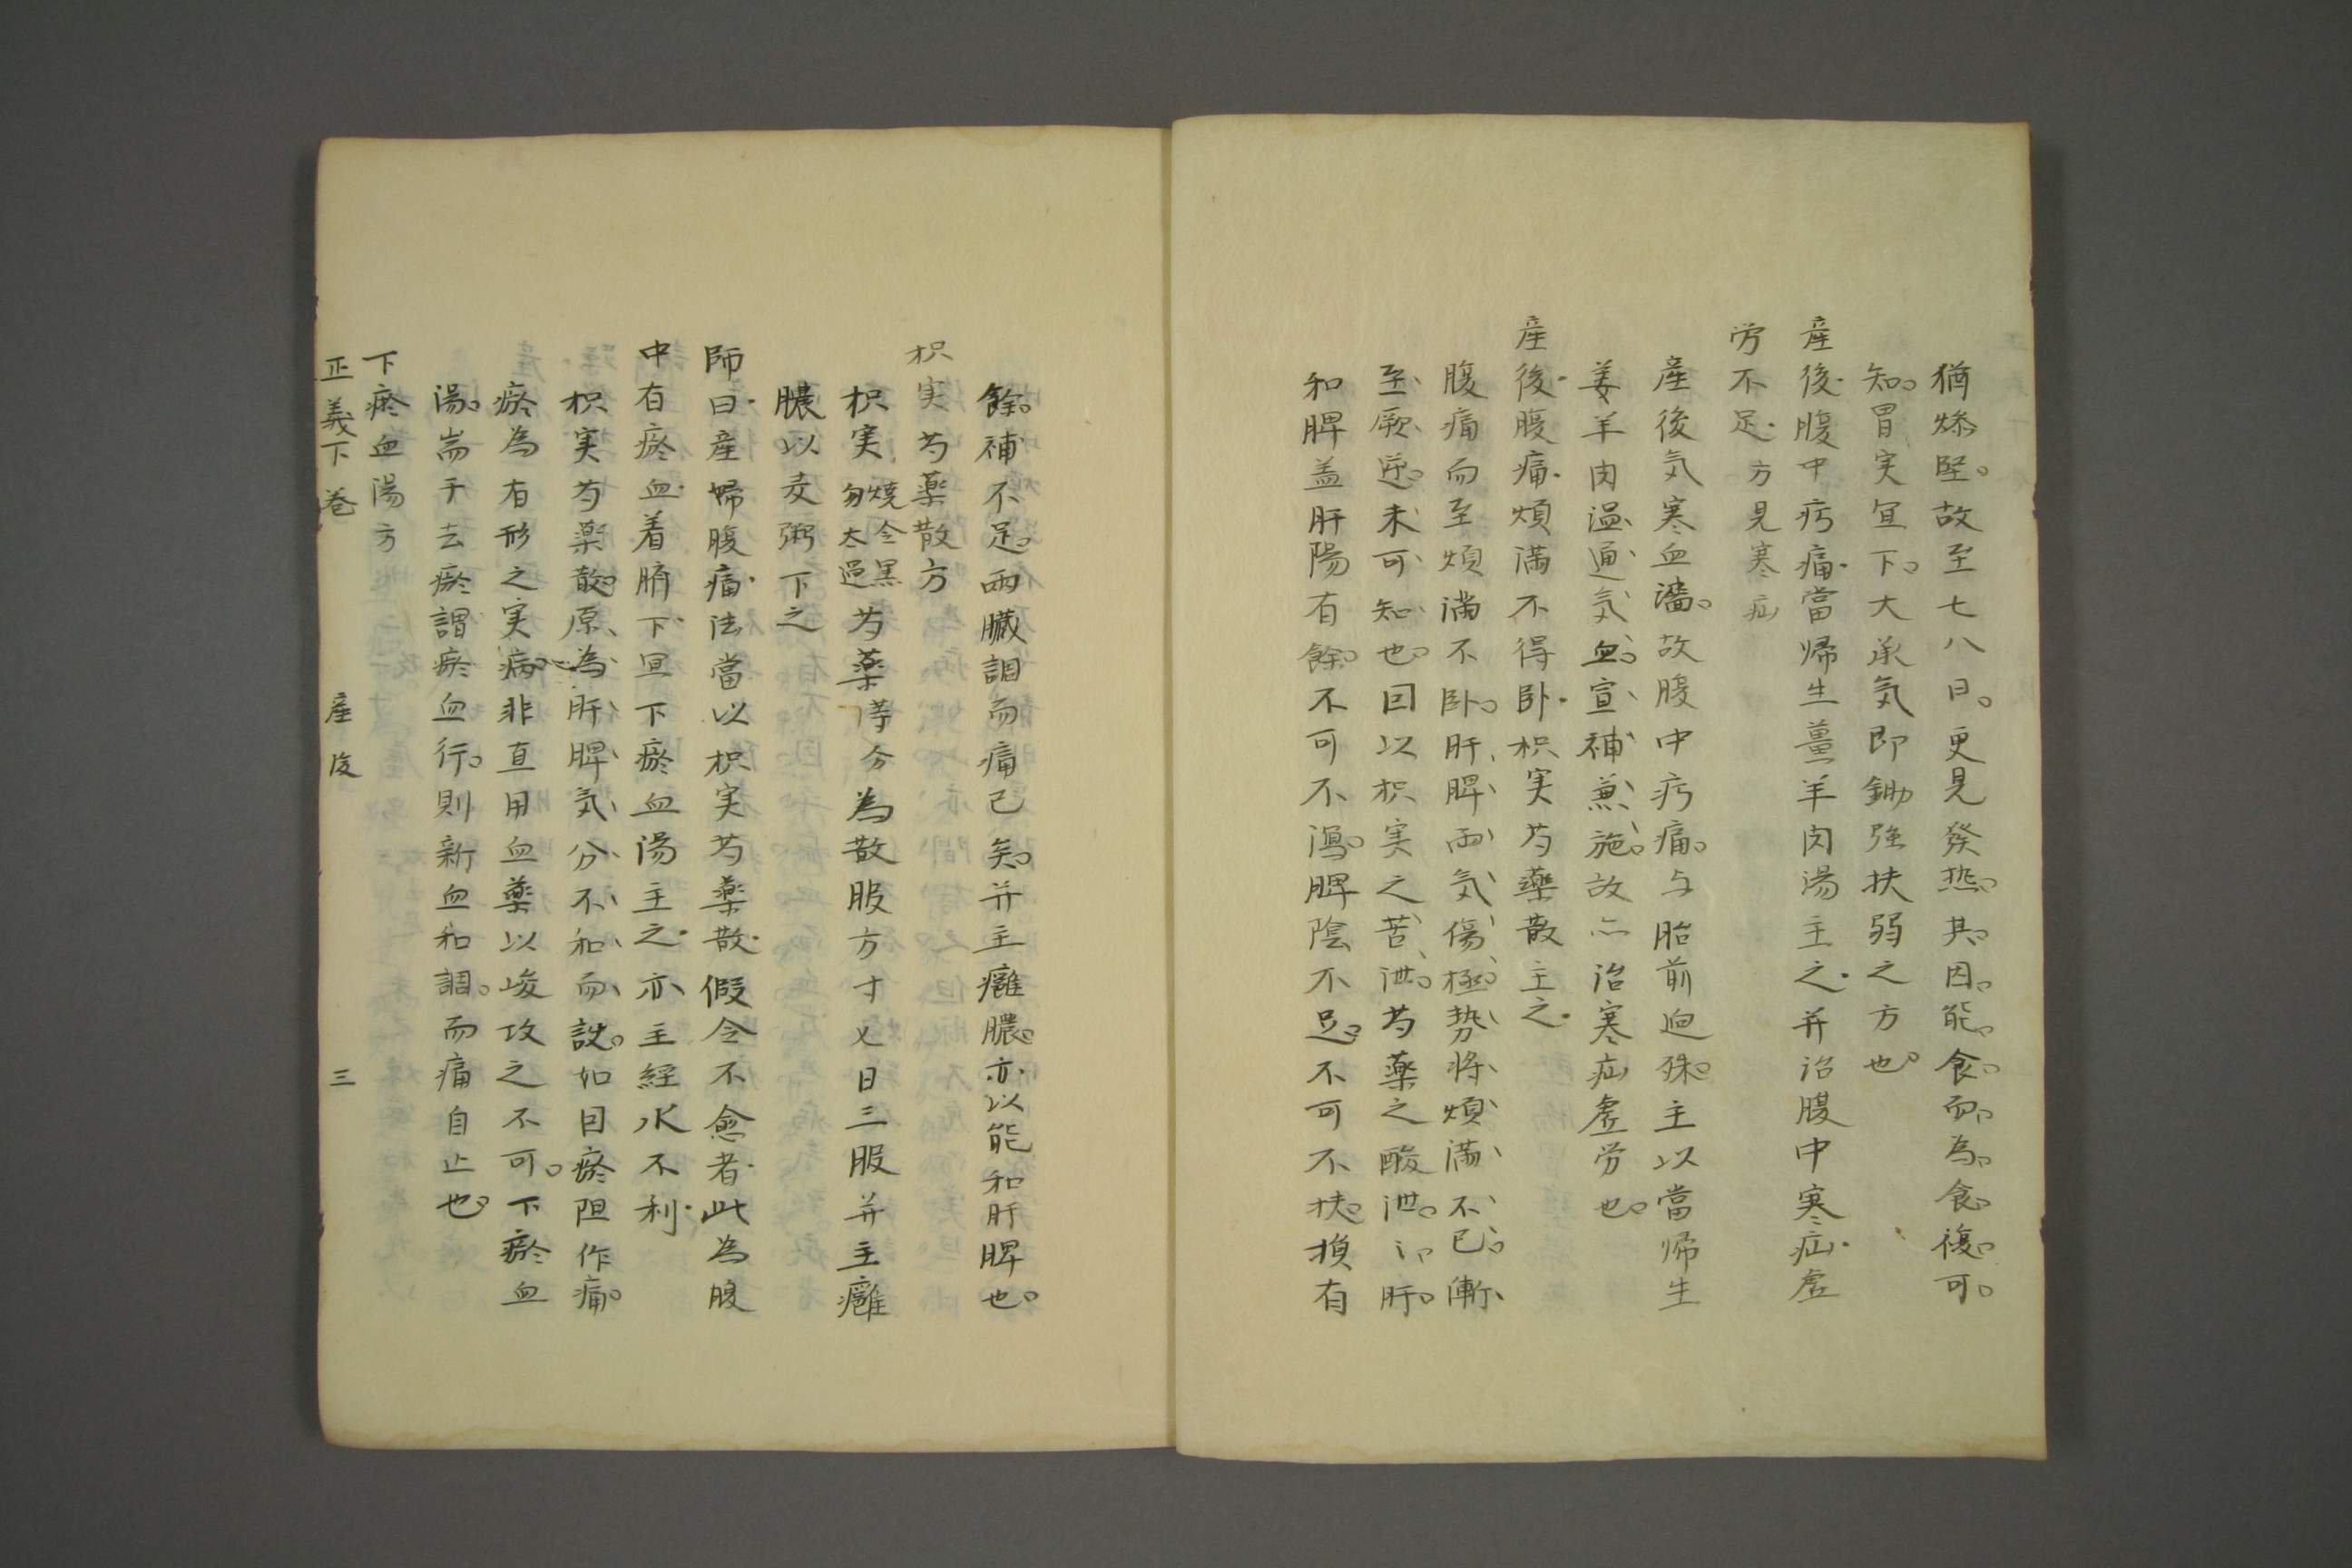 猶燥堅。故至七八日。更見發热。其因。能。食。而為食復。可。
知。胃実宜下。大承気即鋤強扶弱之方也。
産後腹中㽱痛當帰生薑羊肉湯主之并治腹中寒疝虚
労不足 方見寒疝
産後気寒血濇。故腹中㽱痛。与胎前迥殊。主以當帰生
姜羊肉温通気血。宣補兼施。故亦治寒疝虚労也。
産後腹痛煩満不得卧枳実芍薬散主之
腹痛而至煩満不卧。肝脾両気傷極。勢将煩満不已。漸
至厥逆。未可知也。回以枳実之苦泄。芍薬之酸泄。〻肝。
和脾盖肝陽有餘。不可不瀉。脾陰不足。不可不扶。損有
餘。補不足。両臓調而痛已矣。并主癰膿。亦以能和肝脾也。
枳実芍薬散方
枳実 焼令黒勿太過 芍薬 等分 為散服方寸匕日三服并主癰
膿以麦粥下之
師曰産婦腹痛法當以枳実芍薬散假令不愈者此為腹
中有瘀血着臍下宜下瘀血湯主之亦主経水不利
枳実芍薬散。原為肝脾気分不和而設。如因瘀阻作痛。
瘀為有形之実病。非直用血薬以峻攻之不可。下瘀血
湯。耑于去瘀謂瘀血行。則新血和調。而痛自止也。
下瘀血湯方
正義下巻 産後 三